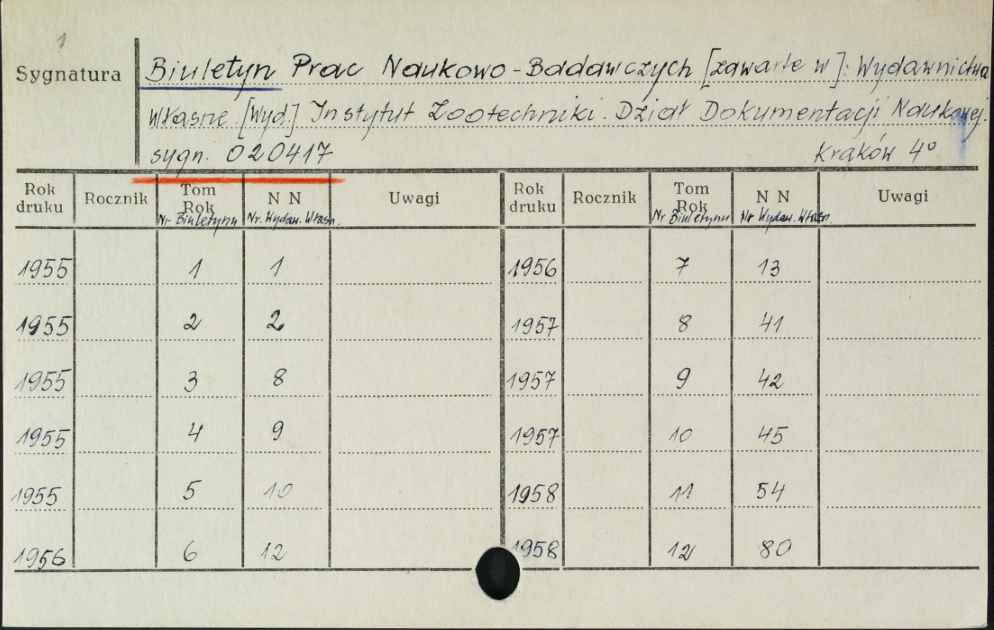 1
Sygnatura
Biuletyn Prac Naukowo-Badawczych [zawarte w]: Wydawnictwa
Własne. [Wyd.] Instytut Zootechniki. Dział Dokumentacji Naukowej.
sygn. 020417 Kraków 4°
Rok druku Rocznik Tom Rok Nr Biuletynu N N Nr. Wydaw. Własn. Uwagi Rok druku Rocznik Tom Rok Nr Biuletynu N N Nr Wydaw. Własn. Uwagi
1955 1 1 1956 7 13
1955 2 2 1957 8 41
1955 3 8 1957 9 42
1955 4 9 1957 10 45
1955 5 10 1958 11 54
1956 6 12 1958 12 80